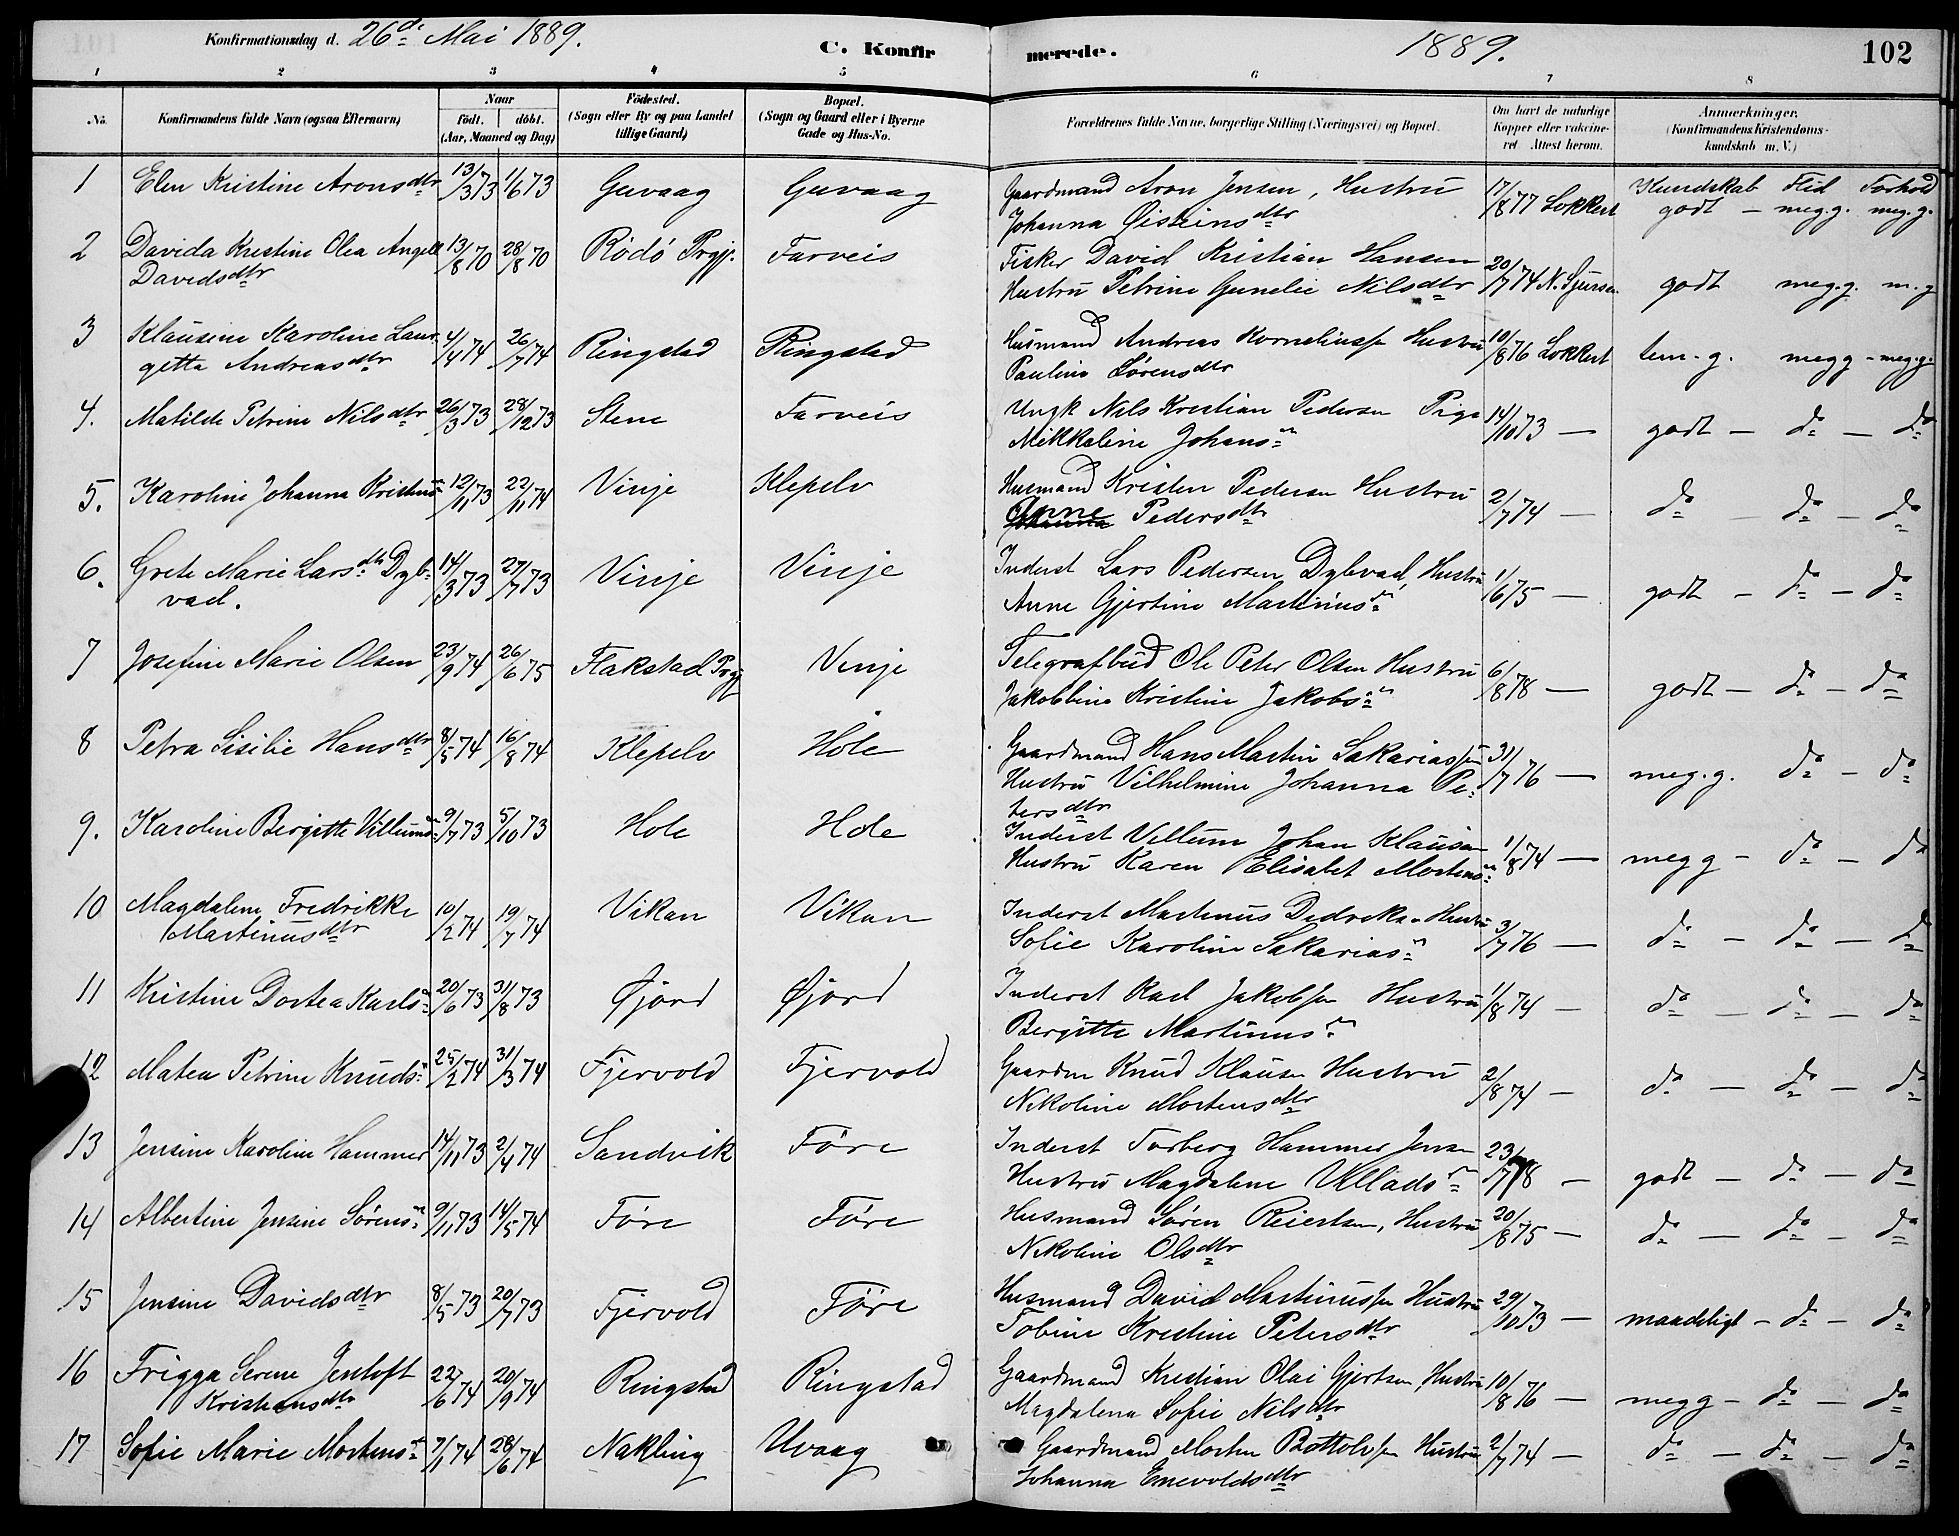 Konfirmationsdag d. 26de Mai 1889. C. Konfirmerede. 1889. 102
1 2 3 4 5 6 7 8
No. Konfirmandens fulde Navn (ogsaa Efternavn) Naar født. døbt. (Aar, Maaned og Dag) Fødested. (Sogn eller By og paa Landet tillige Gaard) Bopæl. (Sogn og Gaard eller i Byerne Gade og Hus-No. Forældrenes fulde Navne, borgerlige Stilling (Næringsvei) og Bopæl. Om havt de naturlige Kopper eller vakcineret. Attest herom. Anmærkninger. (Konfirmandens Kristendomskundskab m. V.)
Kundskab Flid Forhold
1 Elen Kristine Aronsdtr 13/3 73 1/6 73 Guvaag Guvaag Gaardmand Aron Jensen, Hustru 17/8 77 Lokkert godt - meg.g. meg.g.
Johanna Øisteinsdtr
2 Davida Kristine Olea Angell 13/8 70 28/8 70 Rødø Prgj. Farveis Fisker David Kristian Hansen 20/7 74 N. Sjursen godt meg.g. m.g
Davidsdtr Hustru Petrine Gunelie Nilsdtr
3 Klausine Karoline Lau- 4/4 74 26/7 74 Ringstad Ringstad Husmand Andreas Korneliussn Hustru 10/8 76 Lokkert tem-g. megg - meg.g.
getta Andreasdtr Pauline Sørensdtr
4. Matilde Petrine Nilsdtr 26/3 73 28/12 73 Stene Farveis Ungk Nils Kristian Pedersen Pige 14/10 73 — godt - do - do
Mikkaline Johansdr
5. Karoline Johanna Kristensdr 12/11 73 22/11 74 Vinje Klepelv Husmand Kristen Pedersen Hustru 2/7 74 — do do - do
Anne Pedersdtr
6. Grete Marie Larsdtr Dyb- 14/3 73 27/7 73 Vinje Vinje Inderst Lars Pedersen Dybvad, Hustru 1/6 75 — godt - do - do
vad. Anne Gjertine Martinusdr
7 Josefine Marie Olsen 23/9 74 26/6 75 Flakstad Prgj Vinje Telegrafbud Ole Peter Olsen Hustru 6/8 78 — godt - do - do
Jakobbine Kristine Jakobsdr
8 Petra Sisilie Hansdtr 8/5 74 16/8 74 Klepelv Hole Gaardmand Hans Martin Sakariassen 31/7 76 — meg.g. do - do
Hustru Vilhelmine Johanna Pe-
tersdtr
9. Karoline Bergitte Villumsdr 9/7 73 5/10 73 Hole Hole Inderst Villum Johan Klausen 1/8 74 — megg - do - do
Hustru Karen Elisabet Mortensdr
10 Magdalene Fredrikke 10/2 74 19/7 74 Vikan Vikan Inderst Martinus Didriksen Hustru 3/7 76 — do - do - do
Martinusdtr Sofie Karoline Sakariasdr
11 Kristine Dortea Karlsdr 20/6 73 31/8 73 Øjord Øjord Inderst Karl Jakobsen Hustru 1/8 74 — do - do - do
Bergitte Martinusdr
12 Matea Petrine Knudsdr 25/2 74 31/3 74 Fjervold Fjervold Gaardm Knud Klausen Hustru 2/8 74 — do - do - do
Nikoline Mortensdtr
13 Jensine Karoline Hammer 14/11 73 2/4 74 Sandvik Føre Inderst Torberg Hammer Jensen 23/7 78 — godt - do - do
Hustru Magdalene Villadsdr
14 Albertine Jensine Sørensdr 9/11 73 14/5 74 Føre Føre Husmand Søren Reiertsen, Hustru 20/8 75 — do - do - do
Nikoline Olsdtr
15 Jensine Davidsdtr 8/5 73 20/7 73 Fjervold Føre Husmand David Martinussen Hustru 29/10 73 — maadeligt - do - do
Tobine Kristine Petersdtr
16 Frigga Serene Jentoft 22/6 74 20/9 74 Ringstad Ringstad Gaardmand Kristian Olai Gjertsen, Hustru 10/8 76 — megg - do - do
Kristiansdtr Magdalena Sofie Nilsdtr
17 Sofie Marie Mortensdr 7/1 74 28/6 74 Nakling Uvaag Gaardmand Morten Bottolvsen Hustru 2/7 74 — do - do - do
Johanna Enevoldsdtr